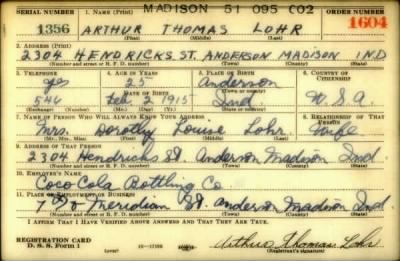 MADISON 51 095 C02
SERIAL NUMBER 1. NAME (Print) ORDER NUMBER
1356 ARTHUR THOMAS LOHR 1604
(First) (Middle) (Last)
2. ADDRESS (Print)
2304 HENDRICKS ST. ANDERSON MADISON IND
(Number and street or R. F. D. number) (Town) (County) (State)
3. TELEPHONE 4. AGE IN YEARS 5. PLACE OF BIRTH 6. COUNTRY OF CITIZENSHIP
Yes 25 Anderson
DATE OF BIRTH (Town or county)
546 Feb. 1915 Ind U.S.A.
(Mo.) (Day) (Yr.) (State or country)
7. NAME OF PERSON WHO WILL ALWAYS KNOW YOUR ADDRESS 8. RELATIONSHIP OF THAT PERSON
Mrs. Dorothy Louise Lohr Wife
(Mr., Mrs., Miss) (First) (Middle) (Last)
9. ADDRESS OF THAT PERSON
2304 Hendricks St. Anderson Madison Ind.
(Number and street or R. F. D. number) (Town) (County) (State)
10. EMPLOYER'S NAME
Coco Cola Bottling Co
11. PLACE OF EMPLOYMENT OR BUSINESS
Meridian St. Anderson Madison Ind.
(Number and street or R. F. D. number) (Town) (County) (State)
I AFFIRM THAT I HAVE VERIFIED ABOVE ANSWERS AND THAT THEY ARE TRUE.
REGISTRATION CARD
D. S. S. Form 1 Arthur Thomas Lohr
(Registrant's signature)